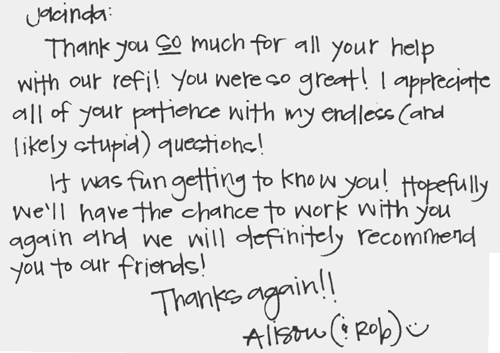 Jacinda:
Thank you so much for all your help
with our refi! You were so great! I appreciate
all of your patience with my endless (and
likely stupid) questions!
It was fun getting to know you! Hopefully
we'll have the chance to work with you
again and we will definitely recommend
you to our friends!
Thanks again!!
Alison (& Rob) :)